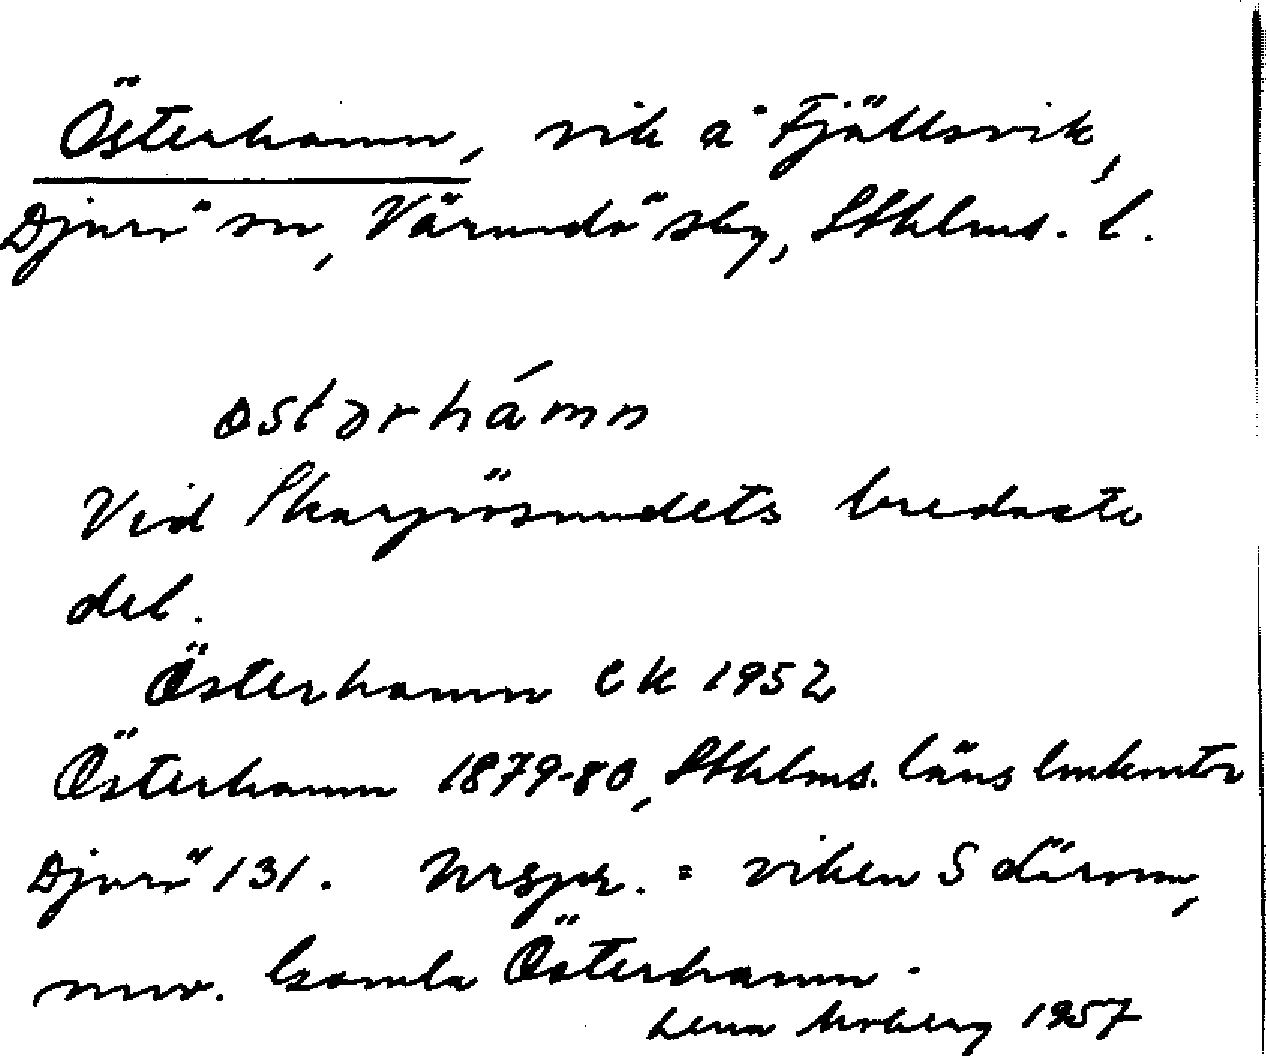 Österhamn, vik å Fjällsvik,
Djurö sn, Värmdö skg, Sthlms. l.
østərhámn
Vid Skarpösundets bredaste
del.
Österhamn EK 1952
Österhamn 1879-80, Sthlms. läns
Djurö 131. Urspr. = viken S därom,
nuv. Gamla Österhamn.
Lena Moberg 1957